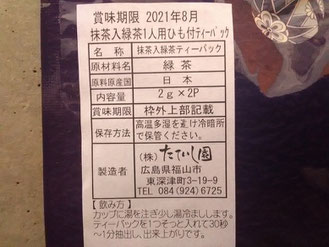 賞味期限 2021年8月
抹茶入緑茶1人用ひも付ティーバック
名称 抹茶入緑茶ティーパック
原材料名 緑茶
原料原産国 日本
内容量 2g×2P
賞味期限 枠外上部記載
保存方法 高温多湿を避け冷暗所
で保管ください。
製造者 (株)たていし園
広島県福山市
東深津町3-19-9
TEL 084(924)6725
【飲み方】
カップに湯を注ぎ少し湯冷まします。
ティーバックを1つそっと入れて30秒
～1分抽出し、出来上がりです。